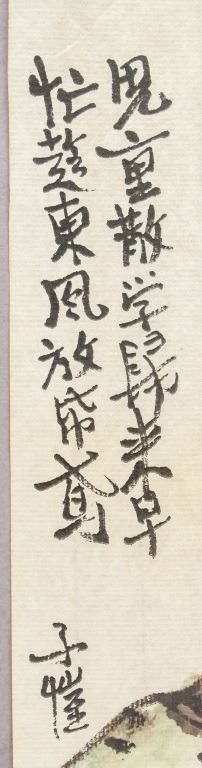 児童散学歸来早
忙趁東風放帋鳶
子愷